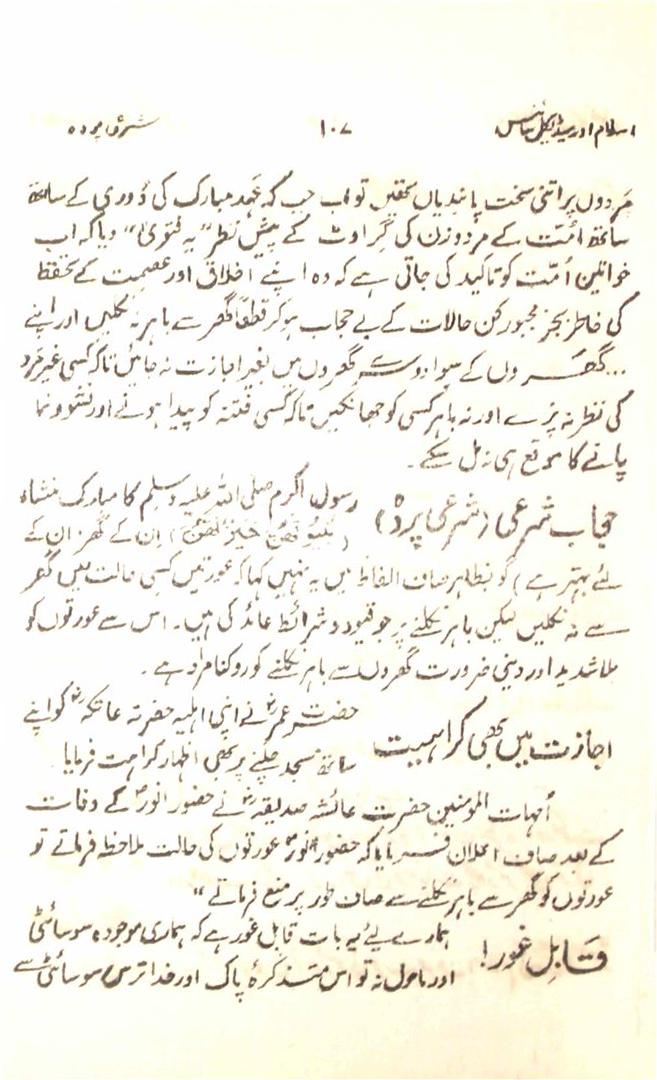 اسلام اور میڈیکل سائنس ۱۰۷ شرعی پردہ
مَردوں پر اتنی سخت پابندیاں تھیں تو اب جب کہ عَہدِ مبارک کی دُوری کے ساتھ
ساتھ اُمّت کے مرد و زن کی گراوٹ کے پیشِ نظر "یہ فتویٰ" دیا کہ اب
خواتینِ اُمّت کو تاکید کی جاتی ہے کہ وہ اپنے اخلاق اور عصمت کے تحفّظ
کی خاطر بجز مجبور کن حالات کے بے حجاب ہو کر قطعاً گھر سے باہر نہ نکلیں اور اپنے
... گھروں کے سوا دوسرے گھروں میں بغیر اجازت نہ جائیں تاکہ کسی غیر مَرد
کی نظر نہ پڑے اور نہ باہر کسی کو جھانکیں تاکہ کسی فتنہ کو پیدا ہونے اور نشوونما
پانے کا موقع ہی نہ مل سکے۔
حجاب شرعی (شرعی پردہ) رسول اکرم صلی اللہ علیہ وسلم کا مبارک منشاء
(بُيُوتُهُنَّ خَيْرٌ لَّهُنَّ) اِن کے گھر اِن کے
لئے بہتر ہے) گو بظاہر صاف الفاظ میں یہ نہیں کہا کہ عورتیں کسی حالت میں گھر
سے نہ نکلیں لیکن باہر نکلنے پر جو قیود و شرائط عائد کی ہیں۔ اس سے عورتوں کو
بلا شدید اور دینی ضرورت گھروں سے باہر نکلنے کو روکنا مراد ہے۔
اجازت میں بھی کراہیت حضرت عمرؓ نے اپنی اہلیہ حضرتہ عاتکہؓ کو اپنے
ساتھ مسجد چلنے پر بھی اظہارِ کراہت فرمایا۔
اُمہات المومنین حضرت عائشہ صدیقہؓ نے حضور انورؐ کے وفات
کے بعد صاف اعلان فرمایا کہ حضور انورؐ عورتوں کی حالت ملاحظہ فرماتے تو
عورتوں کو گھر سے باہر نکلنے سے صاف طور پر منع فرماتے"
قابلِ غور! ہمارے لیئے یہ بات قابلِ غور ہے کہ ہماری موجودہ سوسائٹی
اور ماحول نہ تو اس متذکرۂ پاک اور خدا ترس سوسائٹی سے